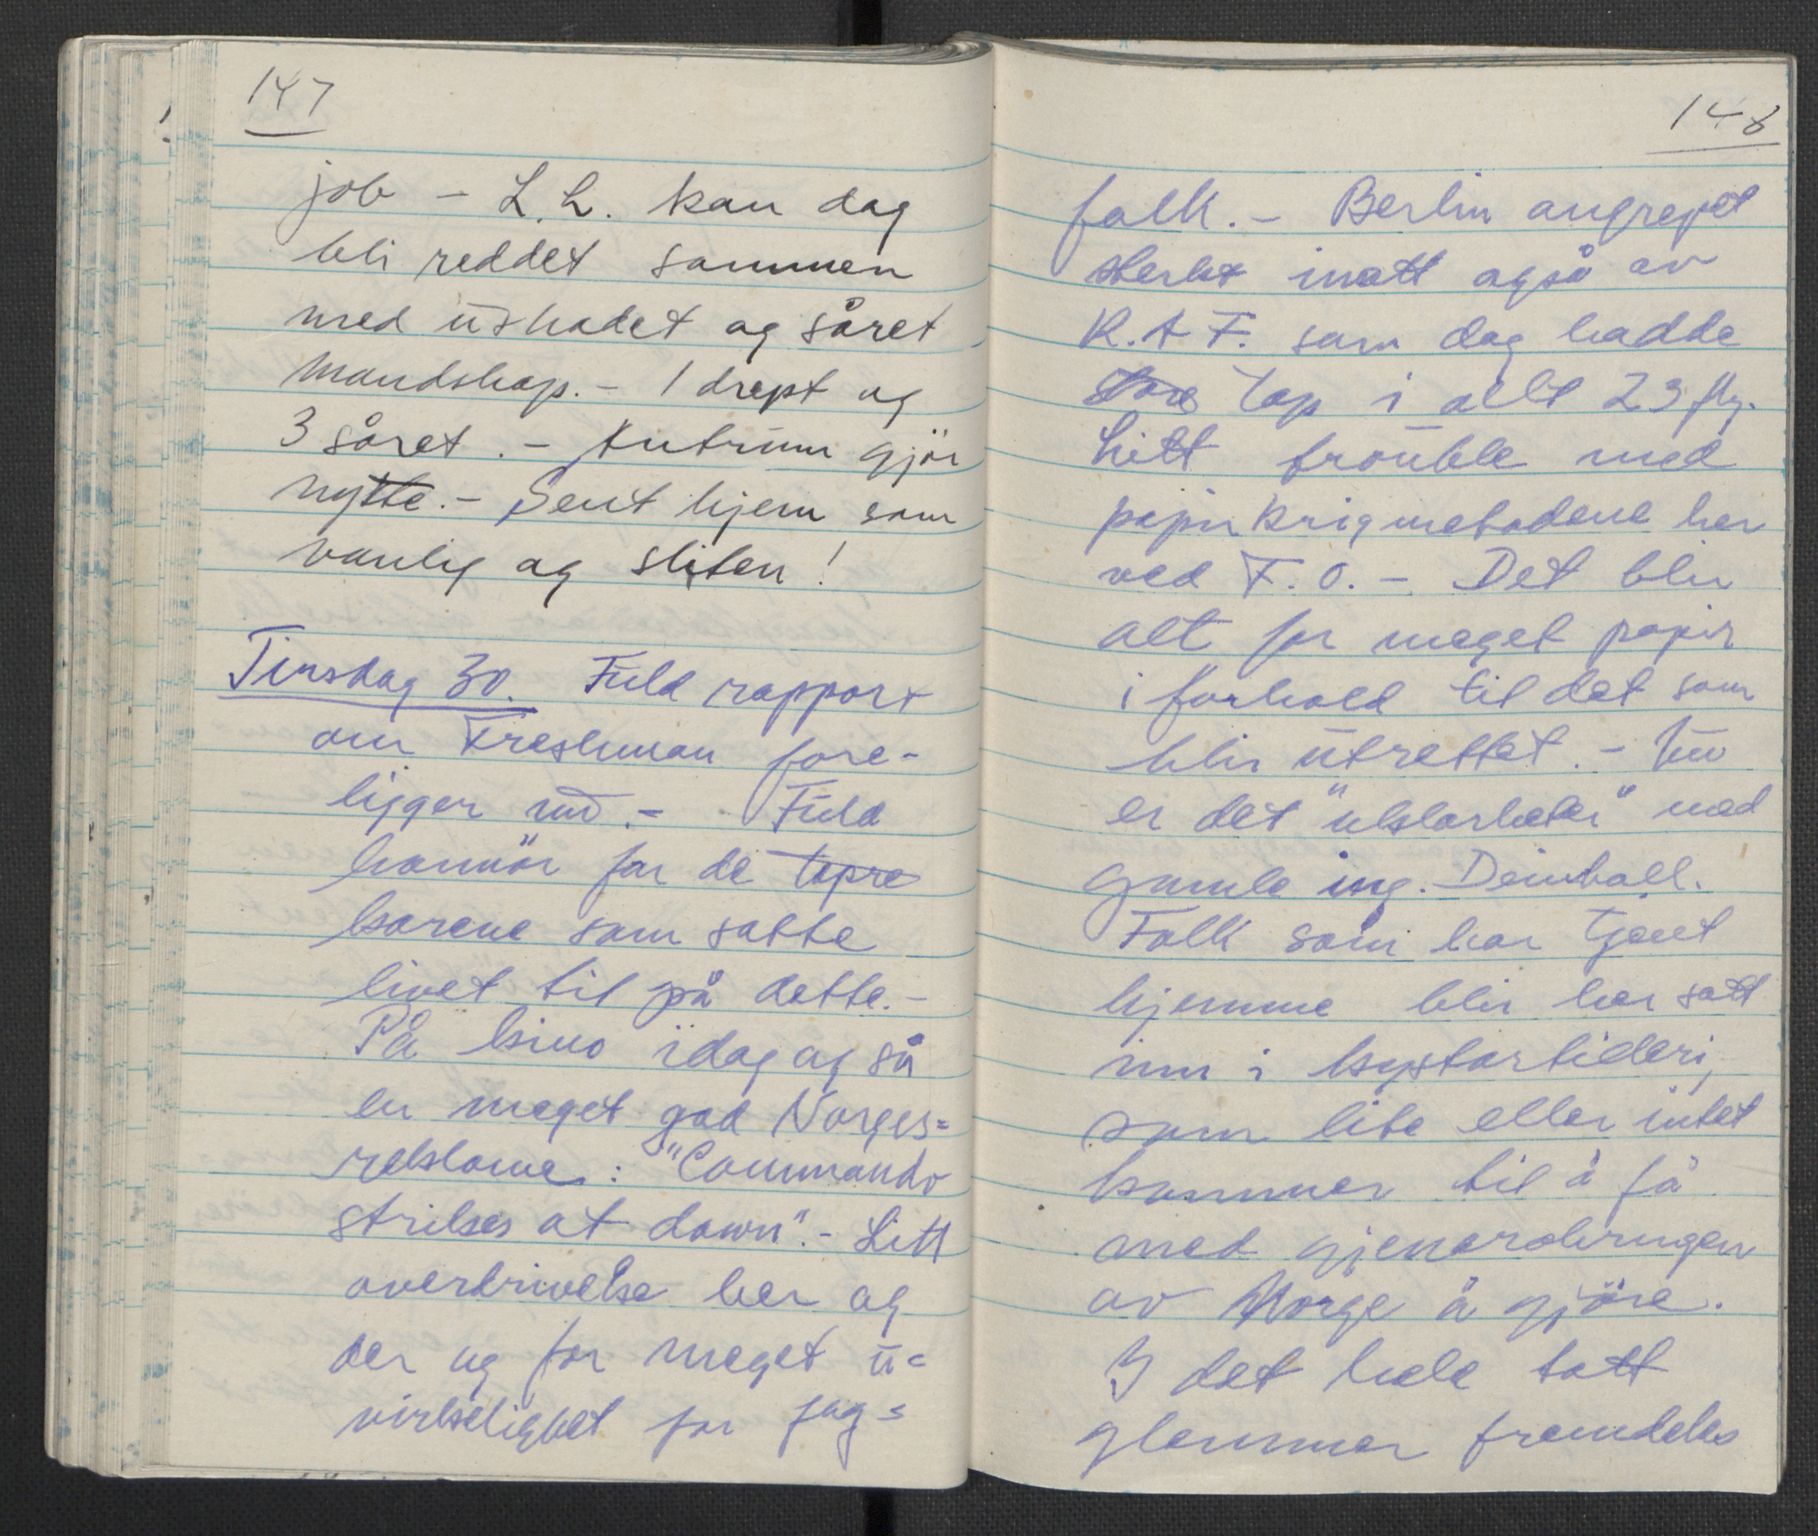 147
job - L.L. kan dog
bli reddet sammen
med uskadet og såret
mandskap. - 1 drept og
3 såret. - Antrum gjör
nytte. - Sent hjem som
vanlig og sliten!
Tirsdag 30. Fuld rapport
om Freshman fore-
ligger nu. - Fuld
honnör for de tapre
karene som satte
livet til på dette. -
På kino idag og så
en meget god Norges=
reklame: "Commando
strikes at dawn". - Litt
overdrivelse her og
der og for meget u=
virkelighet for fag=
148
folk. - Berlin angrepet
sterkt inatt også av
R.A.F. som dog hadde
store tap i alt 23 fly.
Litt trouble med
papirkrigmetodene her
ved F.O. - Det blir
alt for meget papir
i forhold til det som
blir utrettet. - Nu
er det "utskarbeter" med
gamle ing. Deinboll.
Folk som har tjent
hjemme blir her satt
inn i kystartilleri,
som lite eller intet
kommer til å få
med gjenerobringen
av Norge å gjöre.
I det hele tatt
glemmer fremdeles